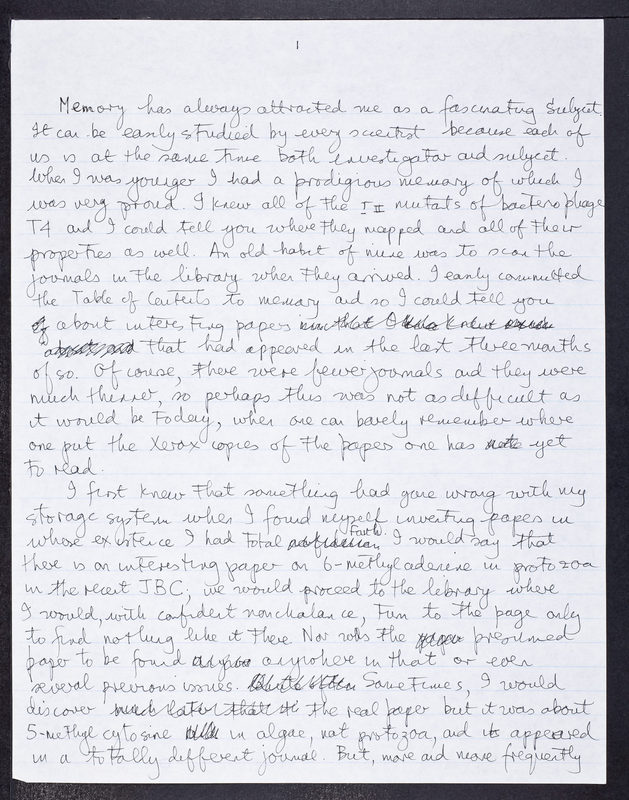 1
Memory has always attracted me as a fascinating subject.
It can be easily studied by every scientist because each of
us is at the same time both investigator and subject.
When I was younger I had a prodigious memory of which I
was very proud. I knew all of the rII mutants of bacteriophage
T4 and I could tell you where they mapped and all of their
properties as well. An old habit of mine was to scan the
journals in the library when they arrived. I easily committed
the Table of Contents to memory and so I could tell you
about interesting papers
that had appeared in the last three months
of so. Of course, there were fewer journals and they were
much thinner, so perhaps this was not as difficult as
it would be today, when one can barely remember where
one put the Xerox copies of the paper one has yet
to read.
I first knew that something had gone wrong with my
storage system when I found myself inventing papers in
whose existence I had total faith. I would say that
there is an interesting paper on 6-methyladenine in protozoa
in the recent JBC; we would proceed to the library where
I would, with confident nonchalance, turn to the page only
to find nothing like it there. Nor was the presumed
paper to be found anywhere in that or even
several previous issues. Sometimes, I would
discover the real paper but it was about
5-methyl cytosine in algae, not protozoa, and it appeared
in a totally different journal. But, more and more frequently